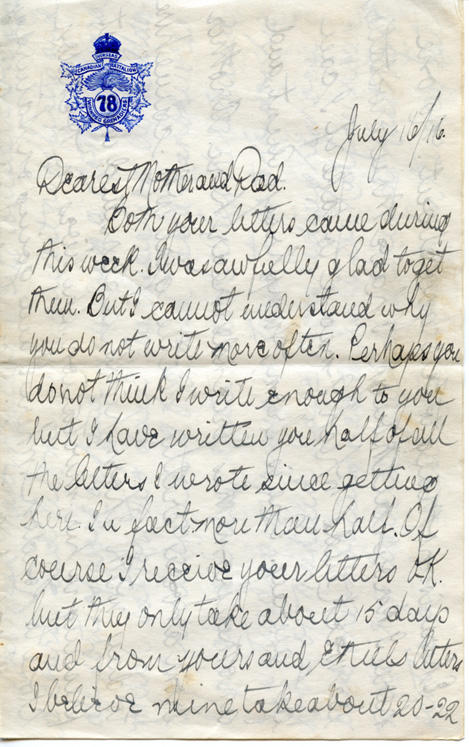 OVERSEAS
CANADIAN BATTALION
78
WINNIPEG GRENADIERS
July 16/16.
Dearest Mother and Dad.
Both your letters came during
this week. I was awfully glad to get
them. But I cannot understand why
you do not write more often. Perhaps you
do not think I write enough to you
but I have written you half of all
the letters I wrote since getting
here. In fact more than half. Of
course I receive your letters O.K.
but they only take about 15 days
and from yours and Ethels letters
I believe mine take about 20-22